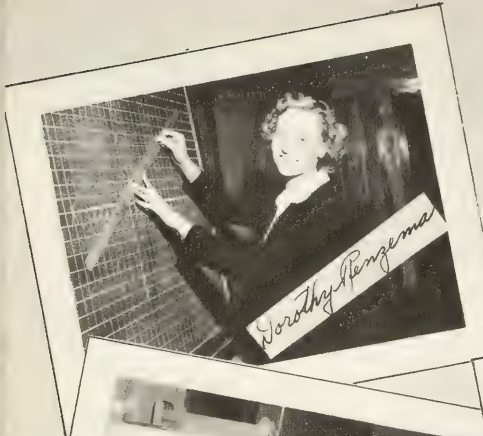 Dorothy Renzema